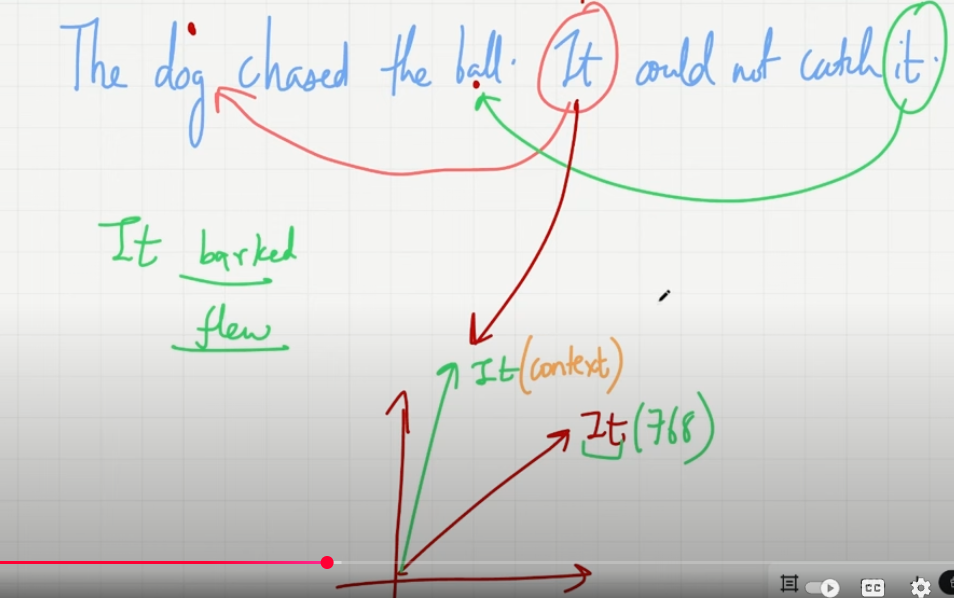 The dog chased the ball. It could not catch it.
It barked
flew
It (context)
It (768)
CC